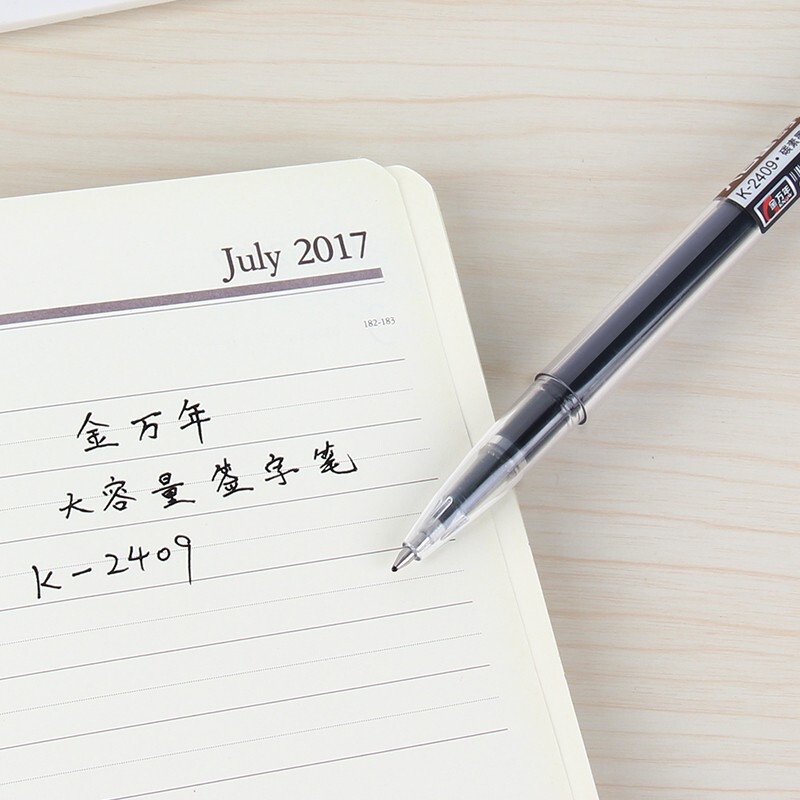 July 2017
182-183
金万年
大容量签字笔
K-2409
K-2409·碳素
金万年